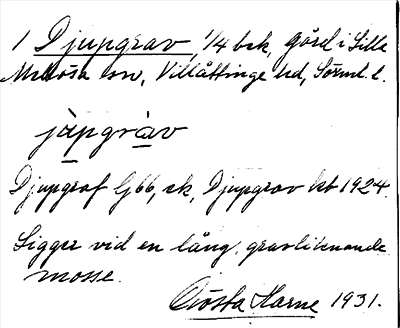 1 Djupgrav, 1/4 bek, gård i Lilla
Mellösa sn, Villåttinge hd, Södml. l.
jùpgràv
Djupgraf G66, sk, Djupgrav kb 1924.
Ligger vid en lång, gravliknande
mosse.
Gösta Harne 1931.